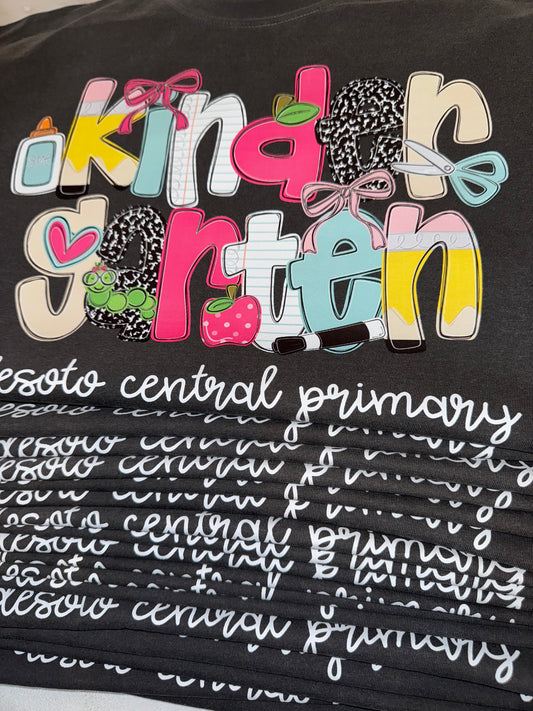 kinder
garten
desoto central primary
central primary
desoto central primary
desoto central primary
desoto central primary
desoto central primary
desoto central primary
desoto central primary
desoto central primary
desoto central primary